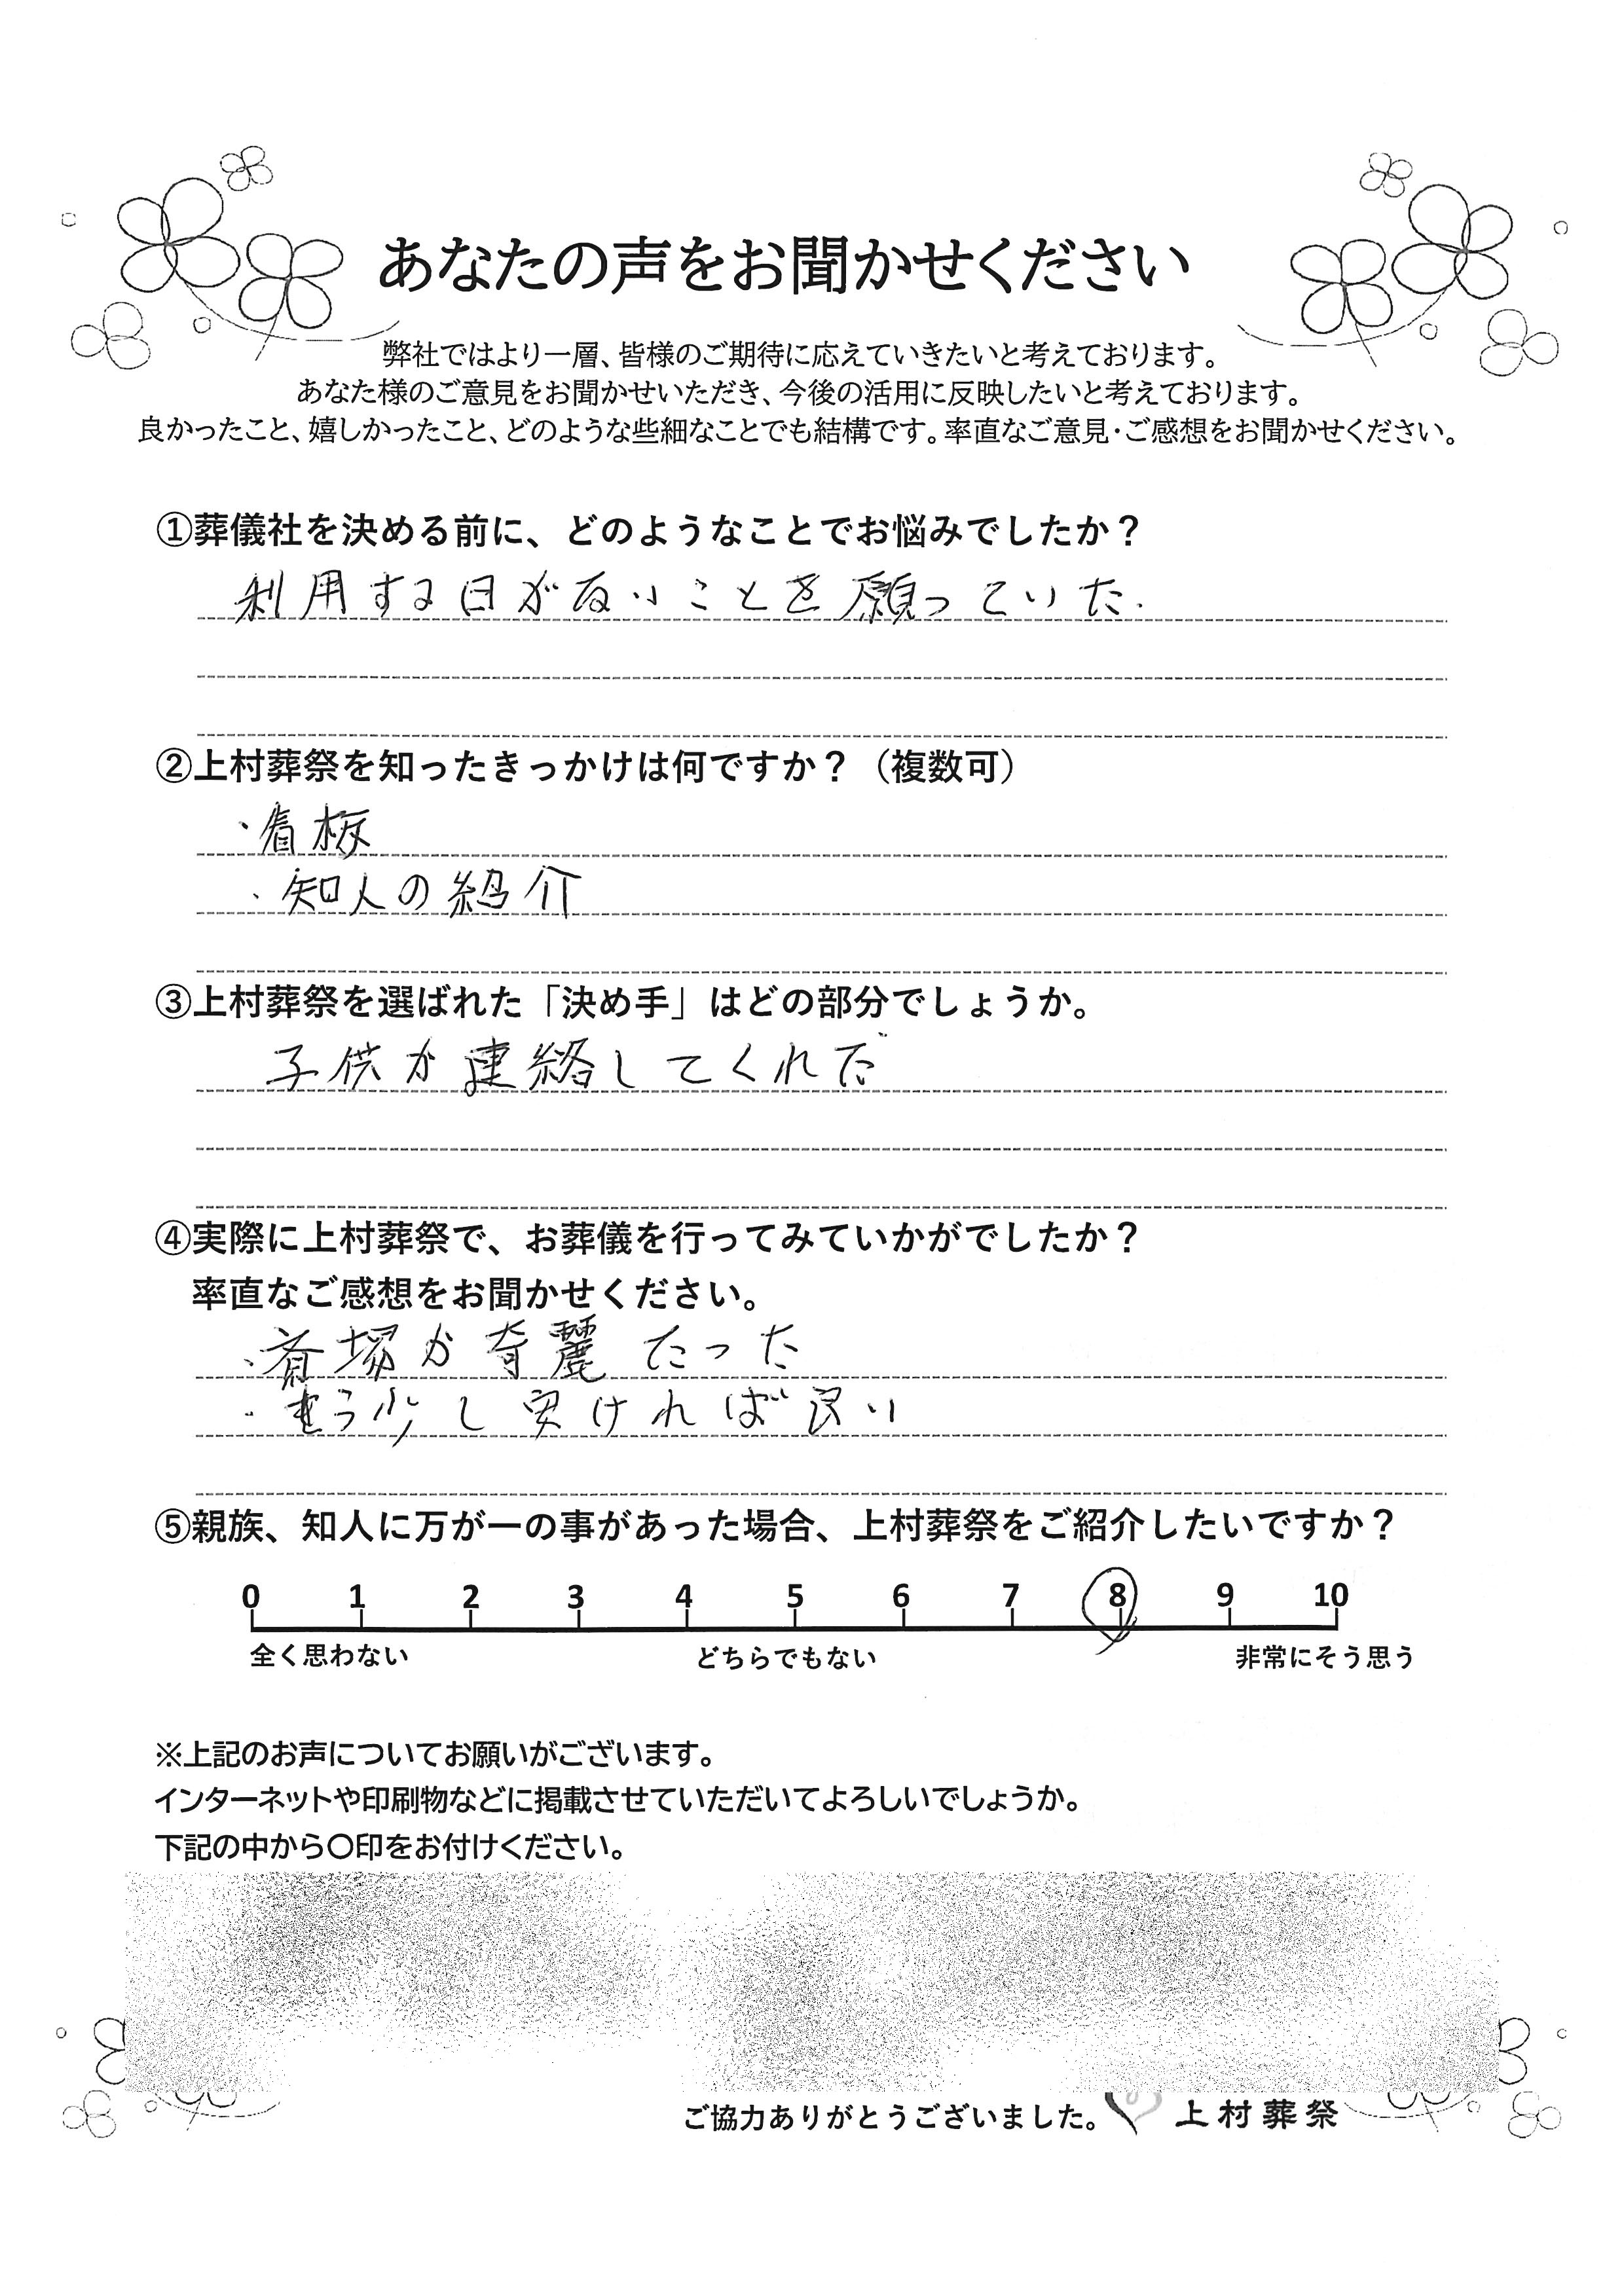 あなたの声をお聞かせください
弊社ではより一層、皆様のご期待に応えていきたいと考えております。
あなた様のご意見をお聞かせいただき、今後の活用に反映したいと考えております。
良かったこと、嬉しかったこと、どのような些細なことでも結構です。率直なご意見・ご感想をお聞かせください。
①葬儀社を決める前に、どのようなことでお悩みでしたか？
利用する日がないことを願っていた.
②上村葬祭を知ったきっかけは何ですか？（複数可）
・看板
・知人の紹介
③上村葬祭を選ばれた「決め手」はどの部分でしょうか。
子供が連絡してくれた
④実際に上村葬祭で、お葬儀を行ってみていかがでしたか？
率直なご感想をお聞かせください。
・斎場が奇麗だった
・もう少し安ければ良い
⑤親族、知人に万が一の事があった場合、上村葬祭をご紹介したいですか？
0 1 2 3 4 5 6 7 8 9 10
全く思わない どちらでもない 非常にそう思う
※上記のお声についてお願いがございます。
インターネットや印刷物などに掲載させていただいてよろしいでしょうか。
下記の中から〇印をお付けください。
ご協力ありがとうございました。 上村葬祭